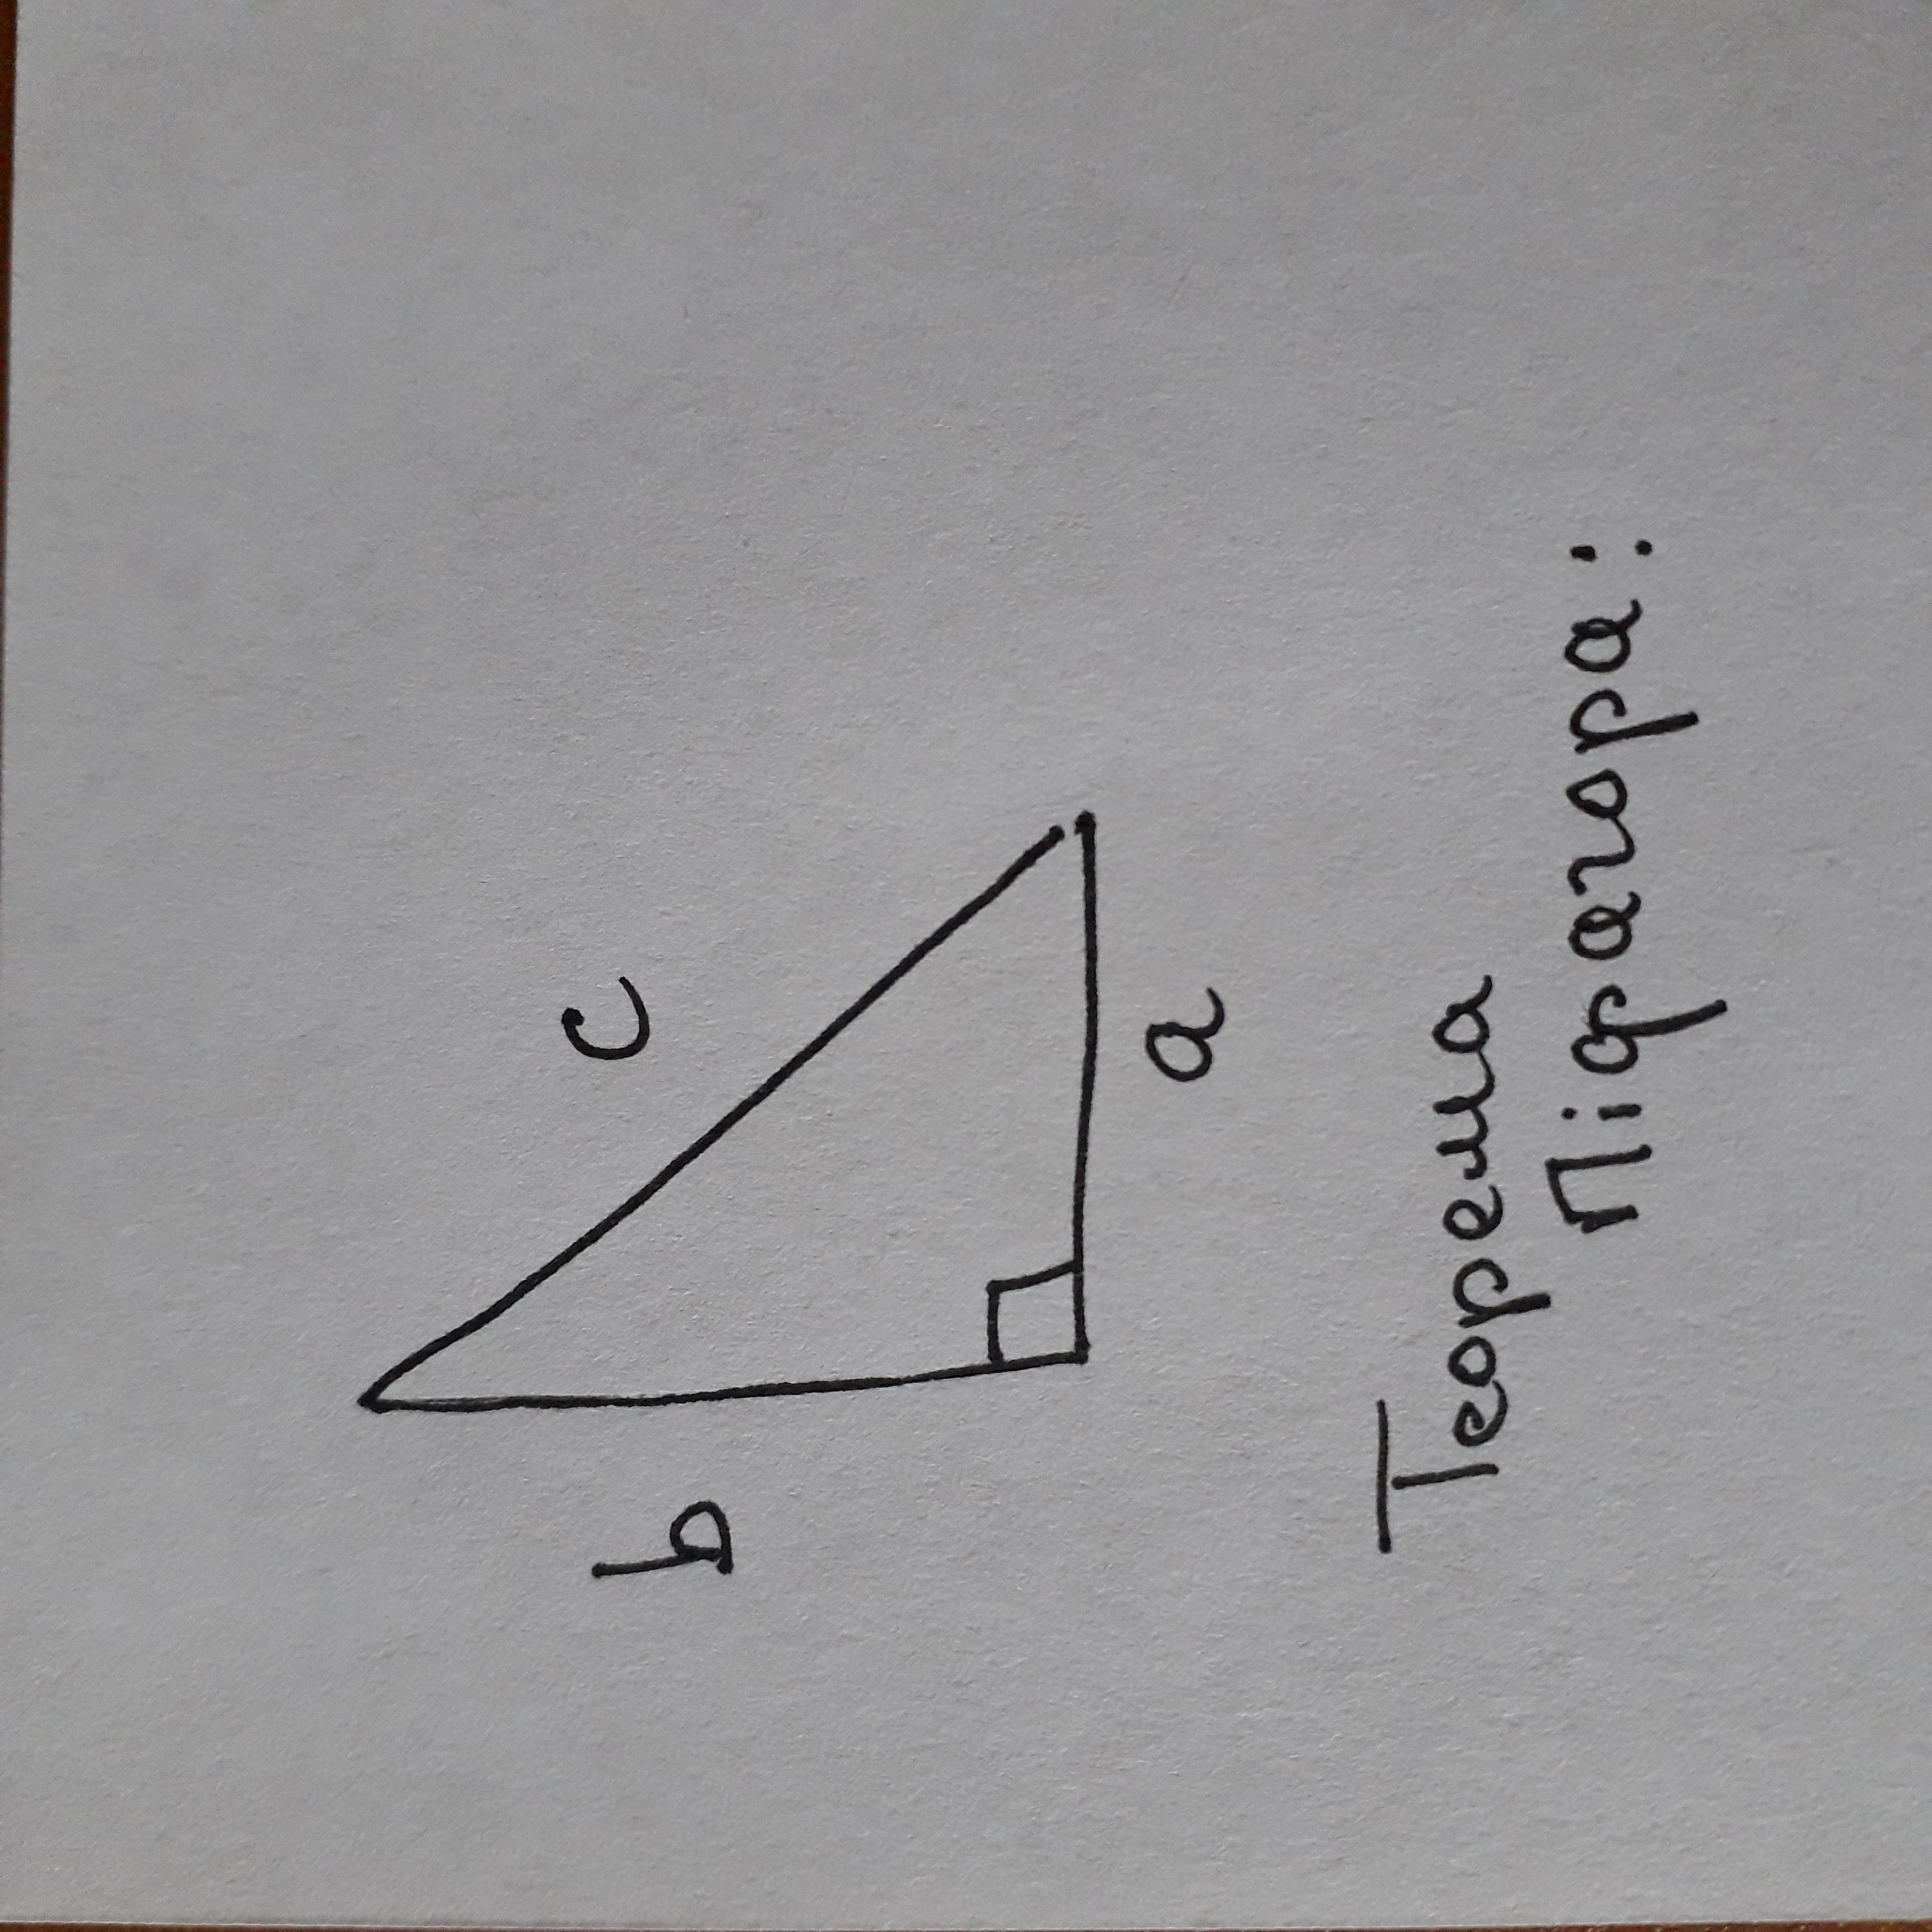 c
b
a
Теорема
Піфагора: